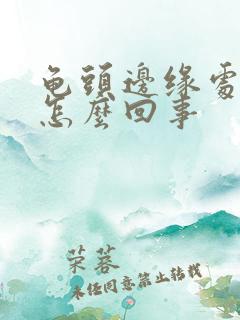 龟頭邊缘處
怎麼回事
芣蓉
未经同意禁止转载